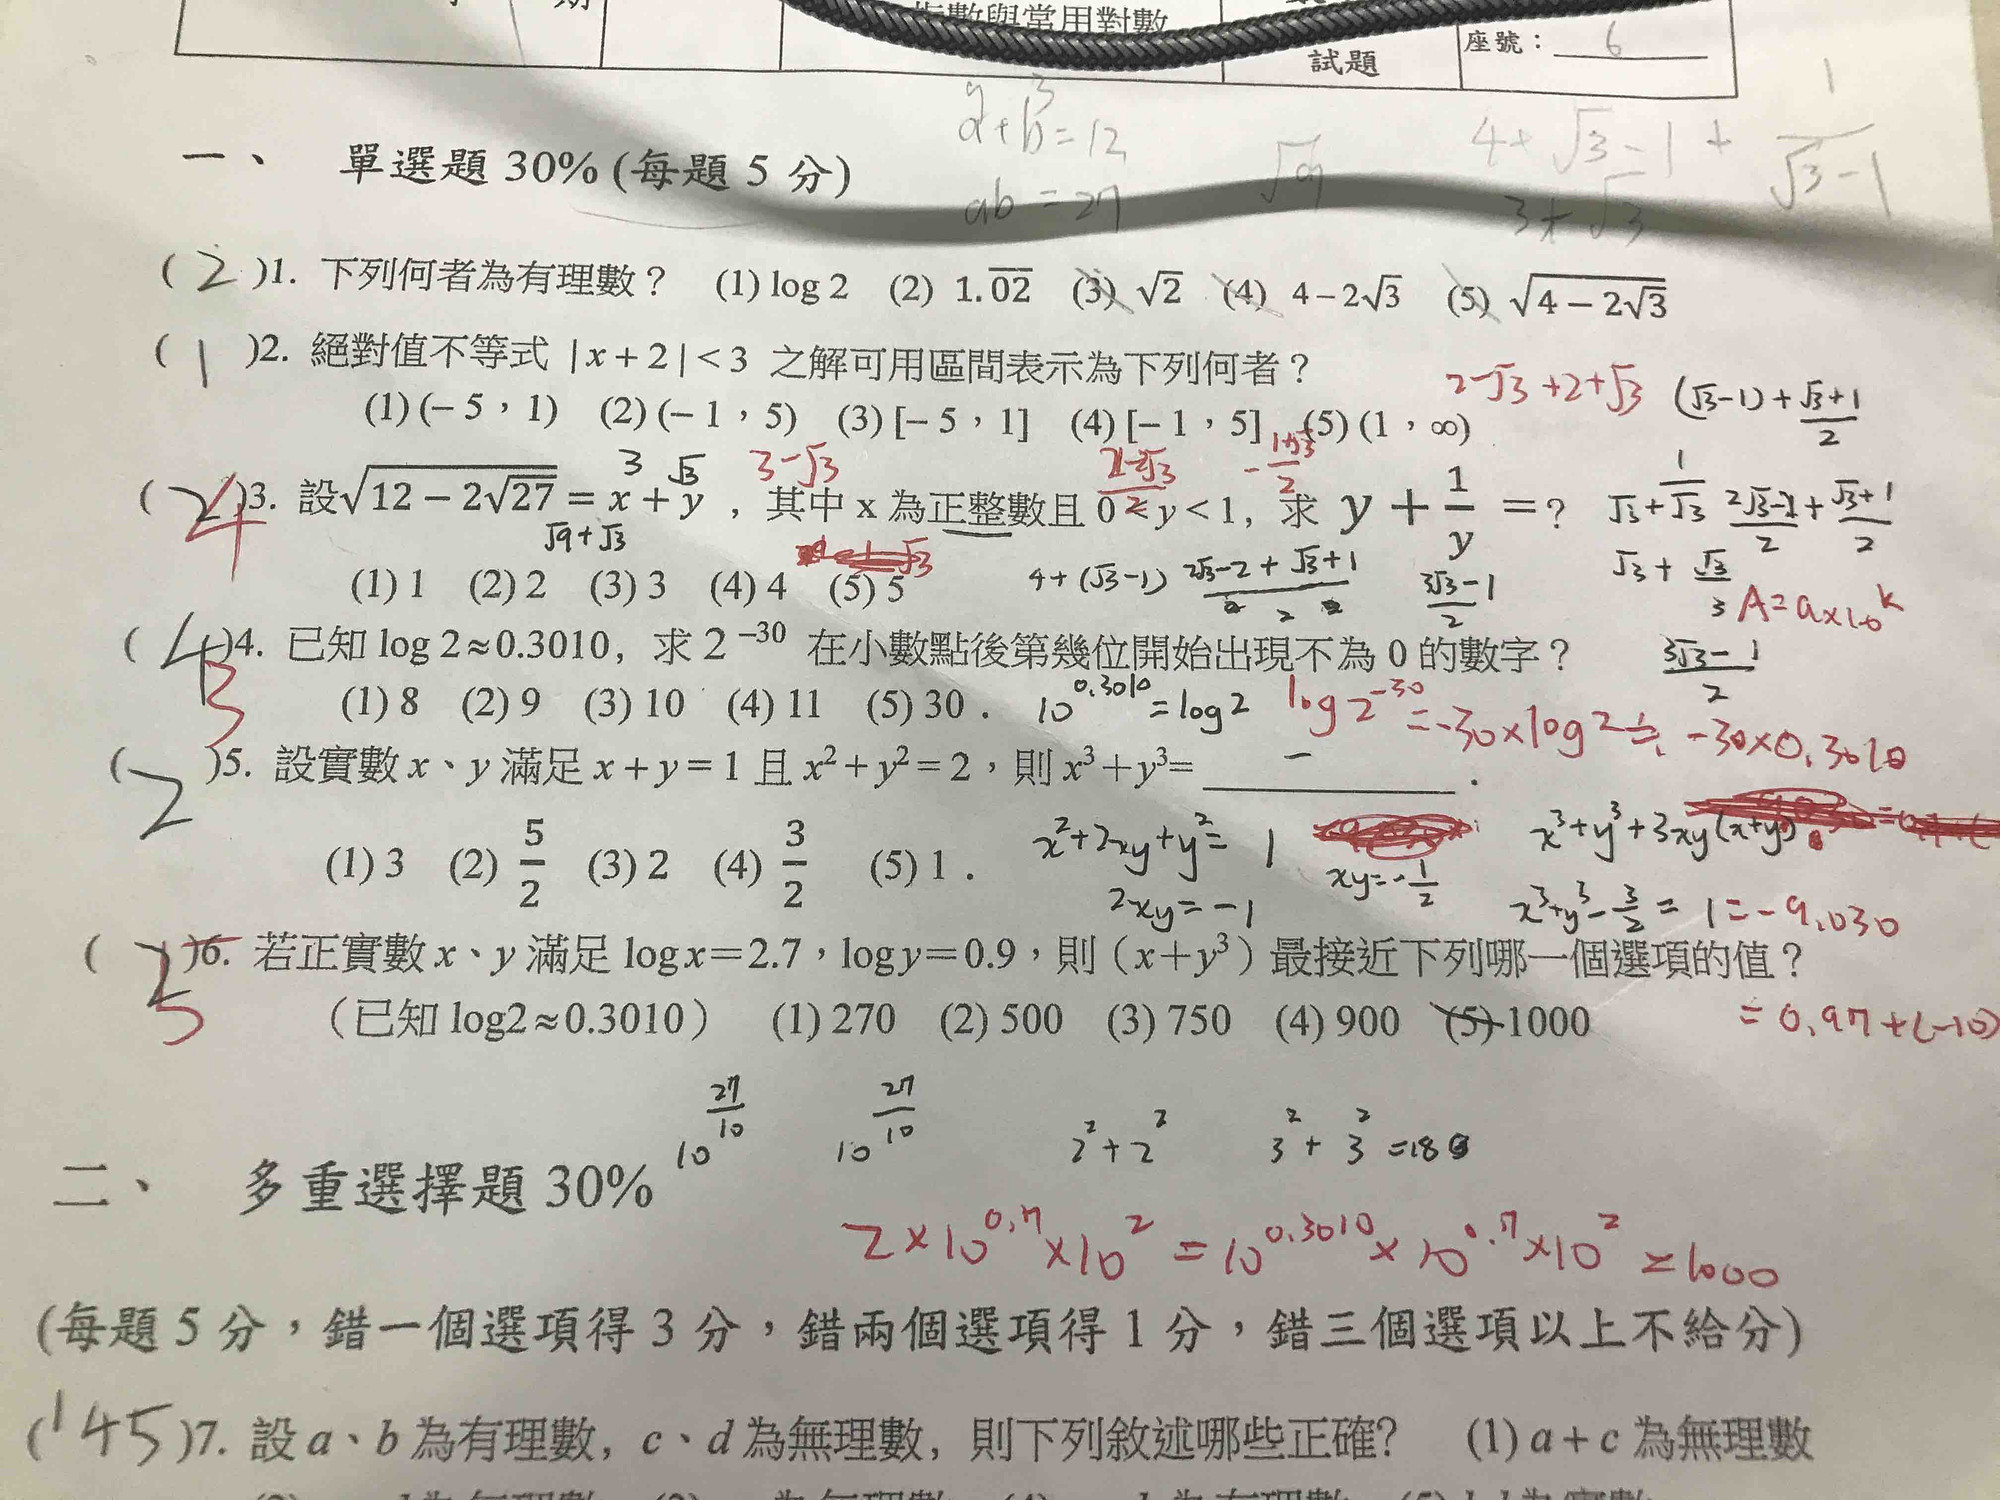 指數與常用對數
試題
座號：6
a+b=12
ab=27
√9
4+√3-1+1/(√3-1)
3+√3
一、 單選題 30% (每題 5 分)
( 2 )1. 下列何者為有理數？ (1) log 2 (2) 1.0̅2̅ (3) √2 (4) 4−2√3 (5) √(4−2√3)
( 1 )2. 絕對值不等式 |x+2|<3 之解可用區間表示為下列何者？
2-√3+2+√3 (√3-1)+(√3+1)/2
(1) (−5，1) (2) (−1，5) (3) [−5，1] (4) [−1，5] (5) (1，∞)
3 √3 3-√3
( 2 4 )3. 設√(12−2√27) = x+y，其中 x 為正整數且 0<y<1，求 y+1/y=？
√9+√3
√3+1/√3 (2√3-2)/2+(√3+1)/2
(1) 1 (2) 2 (3) 3 (4) 4 (5) 5
4+(√3-1) (2√3-2+√3+1)/2 (3√3-1)/2
√3+√3/3
A=a×10^k
( 4 3 )4. 已知 log 2≈0.3010，求 2^−30 在小數點後第幾位開始出現不為 0 的數字？
(3√3-1)/2
(1) 8 (2) 9 (3) 10 (4) 11 (5) 30．
10^0.3010=log2 log2^-30=-30×log2≒-30×0.3010
( 2 )5. 設實數 x、y 滿足 x+y=1 且 x²+y²=2，則 x³+y³=
(1) 3 (2) 5/2 (3) 2 (4) 3/2 (5) 1．
x²+2xy+y²=1
2xy=-1
xy=-1/2
x³+y³+3xy(x+y)
x³+y³-3/2=1
=-9.030
( 5 )6. 若正實數 x、y 滿足 log x=2.7，log y=0.9，則（x+y³）最接近下列哪一個選項的值？
（已知 log2≈0.3010） (1) 270 (2) 500 (3) 750 (4) 900 (5) 1000
=0.97+(-10)
10^(27/10) 10^(27/10) 2²+2² 3²+3²=18
二、 多重選擇題 30%
2×10^0.7×10²=10^0.3010×10^0.7×10²=1000
(每題 5 分，錯一個選項得 3 分，錯兩個選項得 1 分，錯三個選項以上不給分)
( 145 )7. 設 a、b 為有理數，c、d 為無理數，則下列敘述哪些正確? (1) a+c 為無理數